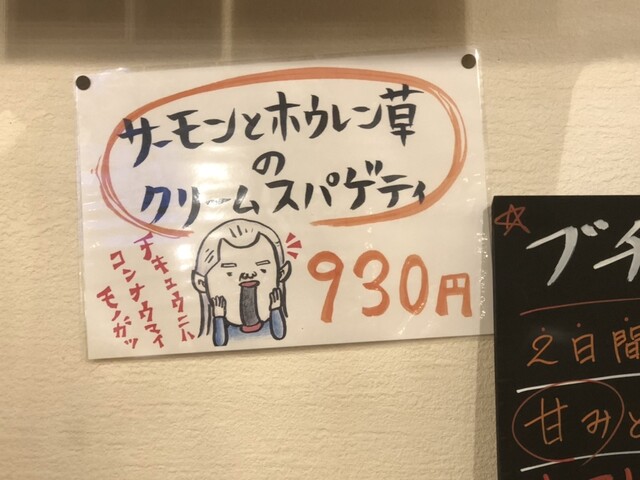 サーモンとホウレン草
の
クリームスパゲティ
チキュウニハ
コンナウマイ
モノガッ
930円
ブチ
2日間
甘みと